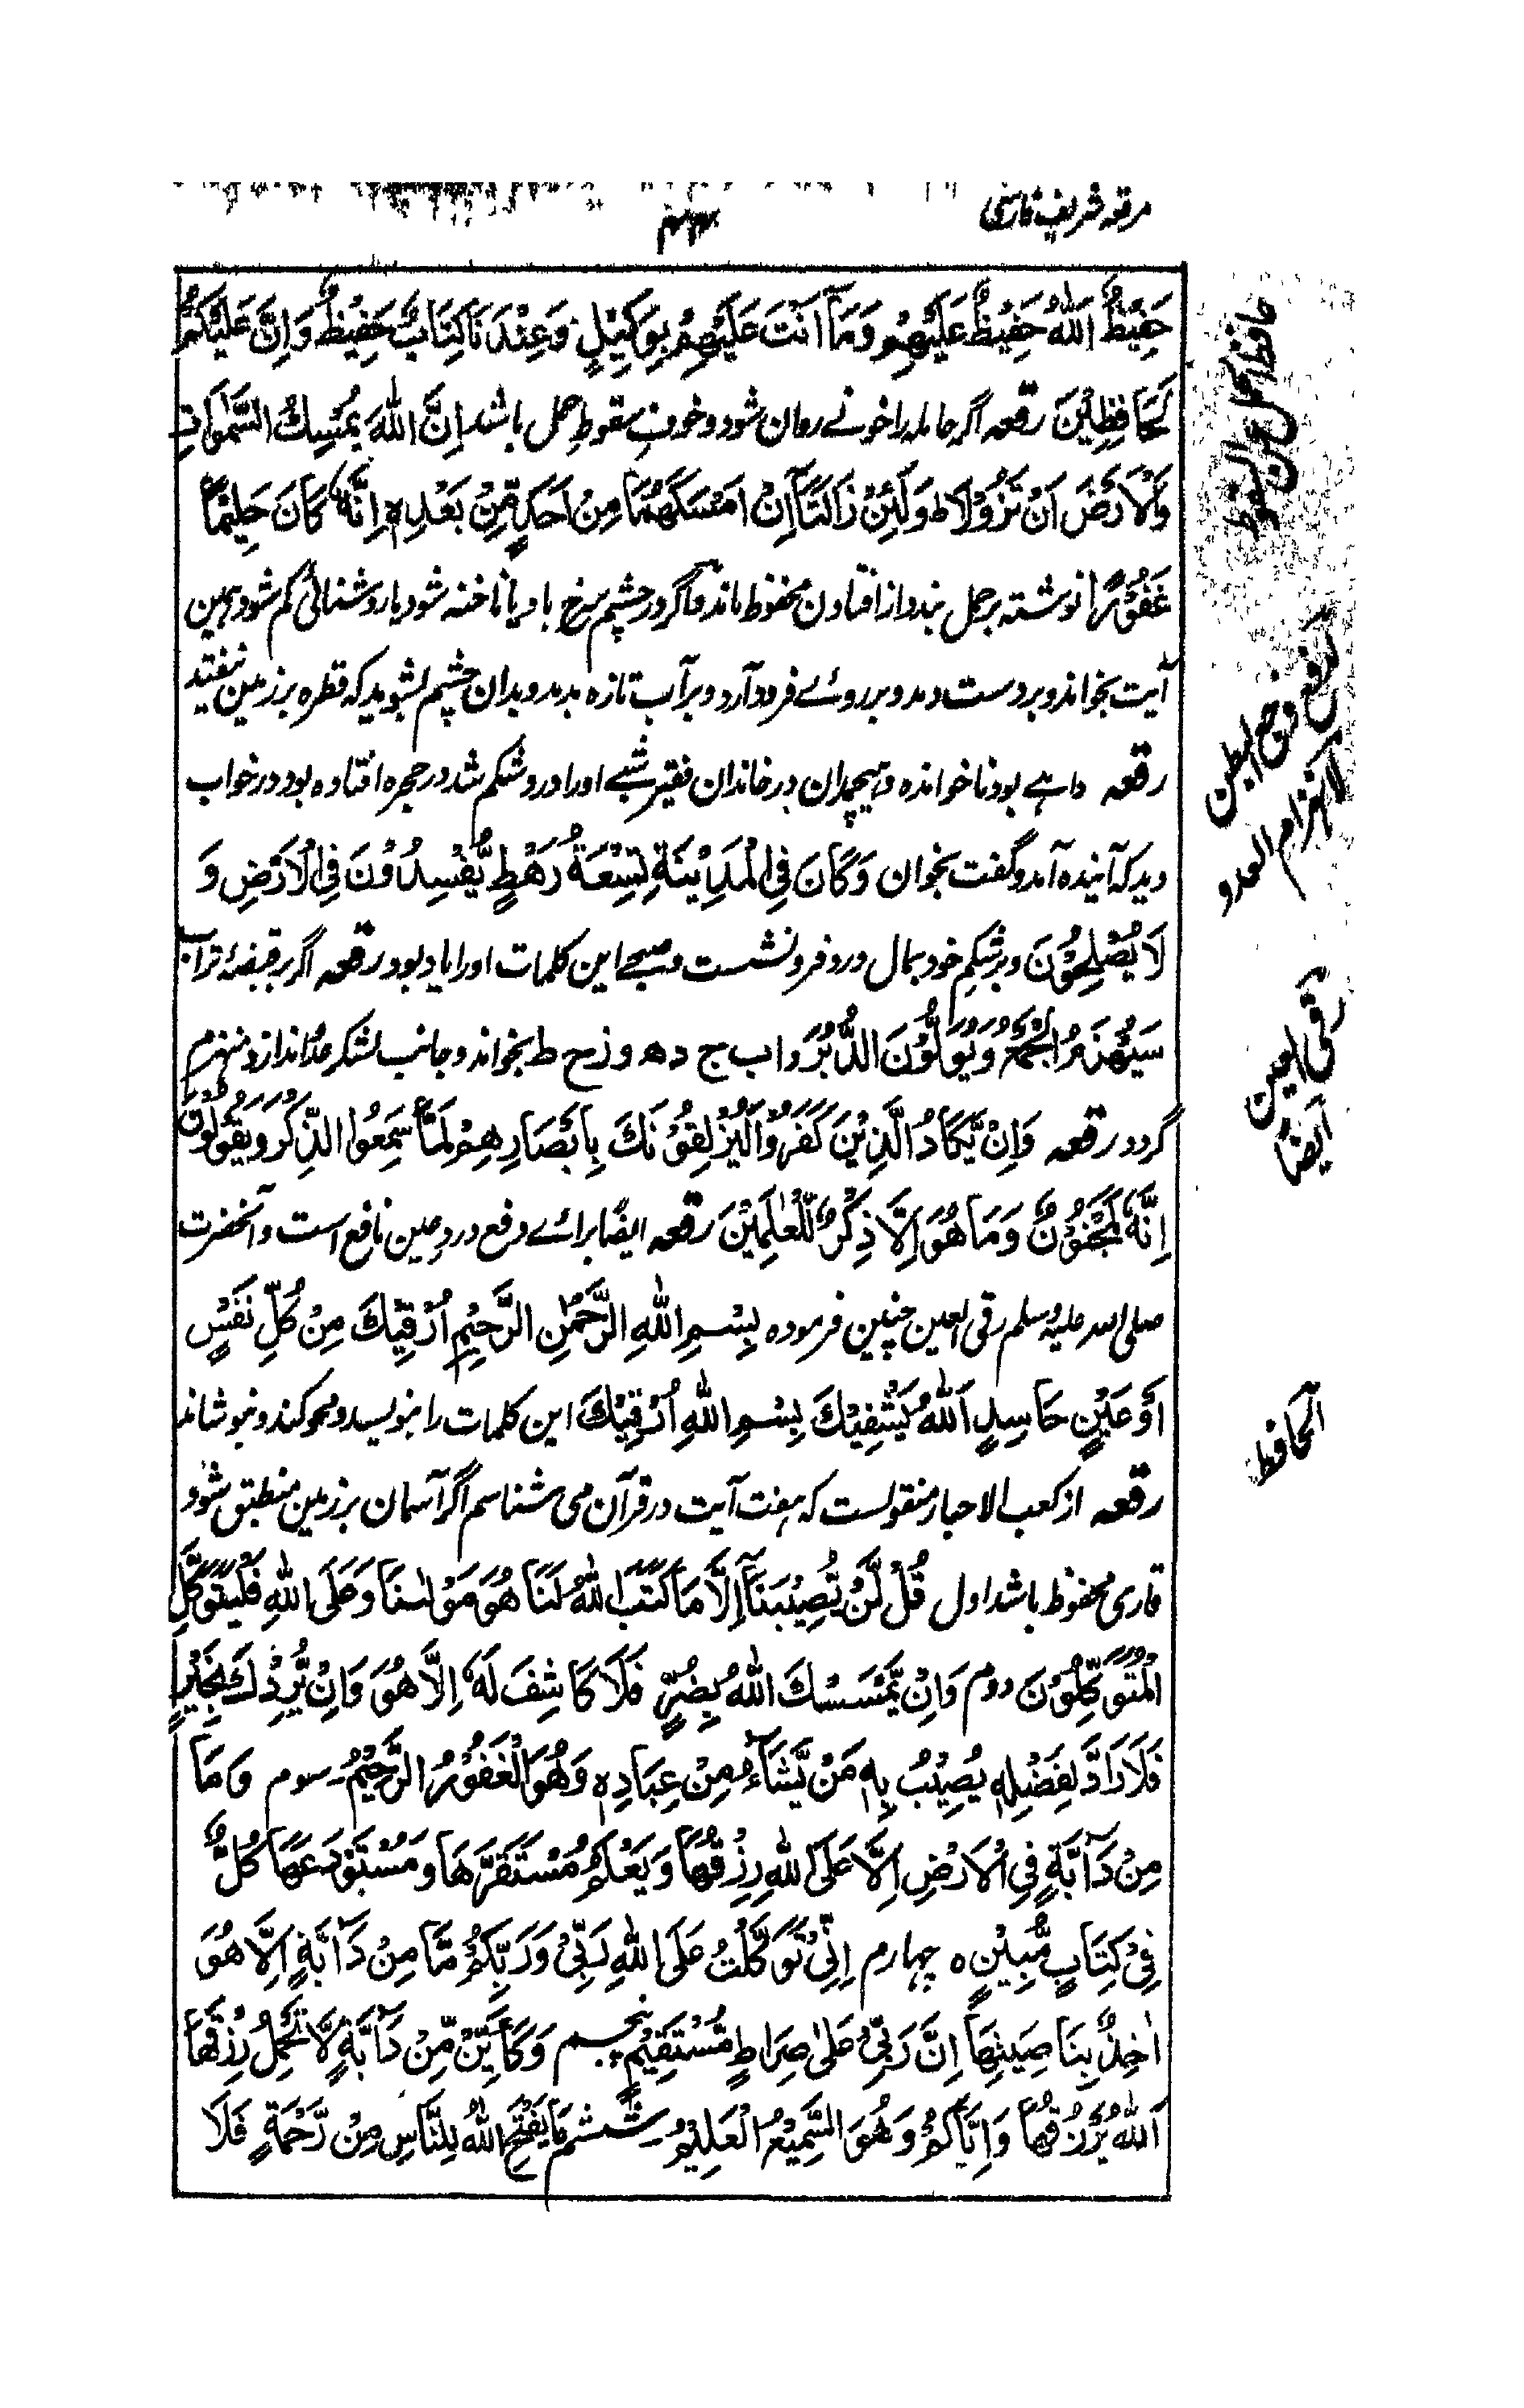 مرقعہ شریف فارسی
حَفِيْظٌ اَللّٰهُ حَفِيْظٌ عَلَيْهِمْ وَمَآ اَنْتَ عَلَيْهِمْ بِوَكِيْلٍ وَعِنْدَنَا كِتَابٌ حَفِيْظٌ وَاِنَّ عَلَيْكُمْ
لَحَافِظِيْنَ رقعہ اگر حاملہ را خونے روان شود و خوفِ سقوطِ حمل باشد اِنَّ اللّٰهَ يُمْسِكُ السَّمٰوَاتِ
وَالْاَرْضَ اَنْ تَزُوْلَا ط وَلَئِنْ زَالَتَآ اِنْ اَمْسَكَهُمَا مِنْ اَحَدٍ مِّنْ بَعْدِهٖ اِنَّهٗ كَانَ حَلِيْمًا
غَفُوْرًا نوشتہ بر حمل بندد از افتادن محفوظ ماند و اگر در چشم سرخ باد یا ناخنہ شود یا روشنائی کم شود ہمین
آیت بخواند و بر دست دمد و بر روئے فرود آرد و بر آب تازہ بدمد و بدان چشم بشوید کہ قطرہ بر زمین نیفتد
رقعہ داہے بود ناخواندہ و ہیچمدان در خاندان فقیر شبے اورا درد شکم شد در حجرہ افتادہ بود در خواب
دید کہ آیندہ آمد و گفت بخوان وَكَانَ فِى الْمَدِيْنَةِ تِسْعَةُ رَهْطٍ يُّفْسِدُوْنَ فِى الْاَرْضِ وَ
لَا يُصْلِحُوْنَ و بر شکم خود بمال درد فرو نشست و صبحے این کلمات اورا یاد بود رقعہ اگر بر قبضۂ تراب
سَيُهْزَمُ الْجَمْعُ وَيُوَلُّوْنَ الدُّبُرَ و ا ب ج د ھ و ز ح ط بخواند و جانب لشکر عدُ اندازد منہزم
گردد رقعہ وَاِنْ يَّكَادُ الَّذِيْنَ كَفَرُوْا لَيُزْلِقُوْنَكَ بِاَبْصَارِهِمْ لَمَّا سَمِعُوا الذِّكْرَ وَيَقُوْلُوْنَ
اِنَّهٗ لَمَجْنُوْنٌ وَمَا هُوَ اِلَّا ذِكْرٌ لِّلْعٰلَمِيْنَ رقعہ ایضًا برائے دفع درد عین نافع است و آنحضرت
صلی اللہ علیہ وسلم رقی العین چنین فرمودہ بِسْمِ اللّٰهِ الرَّحْمٰنِ الرَّحِيْمِ اُرْقِيْكَ مِنْ كُلِّ نَفْسٍ
اَوْ عَيْنٍ حَاسِدٍ اَللّٰهُ يَشْفِيْكَ بِسْمِ اللّٰهِ اُرْقِيْكَ این کلمات را بنویسد و محو کند و بنوشاند
رقعہ از کعب الاحبار منقولست کہ ہفت آیت در قرآن می شناسم اگر آسمان بر زمین منطبق شود
قاری محفوظ باشد اول قُلْ لَّنْ تُصِيْبَنَآ اِلَّا مَا كَتَبَ اللّٰهُ لَنَا هُوَ مَوْلٰنَا وَعَلَى اللّٰهِ فَلْيَتَوَكَّلِ
الْمُتَوَكِّلُوْنَ دوم وَاِنْ يَّمْسَسْكَ اللّٰهُ بِضُرٍّ فَلَا كَاشِفَ لَهٗ اِلَّا هُوَ وَاِنْ يُّرِدْكَ بِخَيْرٍ
فَلَا رَادَّ لِفَضْلِهٖ يُصِيْبُ بِهٖ مَنْ يَّشَآءُ مِنْ عِبَادِهٖ وَهُوَ الْغَفُوْرُ الرَّحِيْمُ۔ سوم وَمَا
مِنْ دَآبَّةٍ فِى الْاَرْضِ اِلَّا عَلَى اللّٰهِ رِزْقُهَا وَيَعْلَمُ مُسْتَقَرَّهَا وَمُسْتَوْدَعَهَا كُلٌّ
فِىْ كِتَابٍ مُّبِيْنٍ ہ چہارم اِنِّىْ تَوَكَّلْتُ عَلَى اللّٰهِ رَبِّىْ وَرَبِّكُمْ مَّا مِنْ دَآبَّةٍ اِلَّا هُوَ
اٰخِذٌ بِنَاصِيَتِهَا اِنَّ رَبِّىْ عَلٰى صِرَاطٍ مُّسْتَقِيْمٍ پنجم وَكَاَيِّنْ مِّنْ دَآبَّةٍ لَّا تَحْمِلُ رِزْقَهَا
اَللّٰهُ يَرْزُقُهَا وَاِيَّاكُمْ وَهُوَ السَّمِيْعُ الْعَلِيْمُ۔ ششم مَا يَفْتَحِ اللّٰهُ لِلنَّاسِ مِنْ رَّحْمَةٍ فَلَا
حافظ الحمل عن السقوط
لدفع وجع البطن
لانہزام العدو
رقی العین
ایضًا
الحافظ